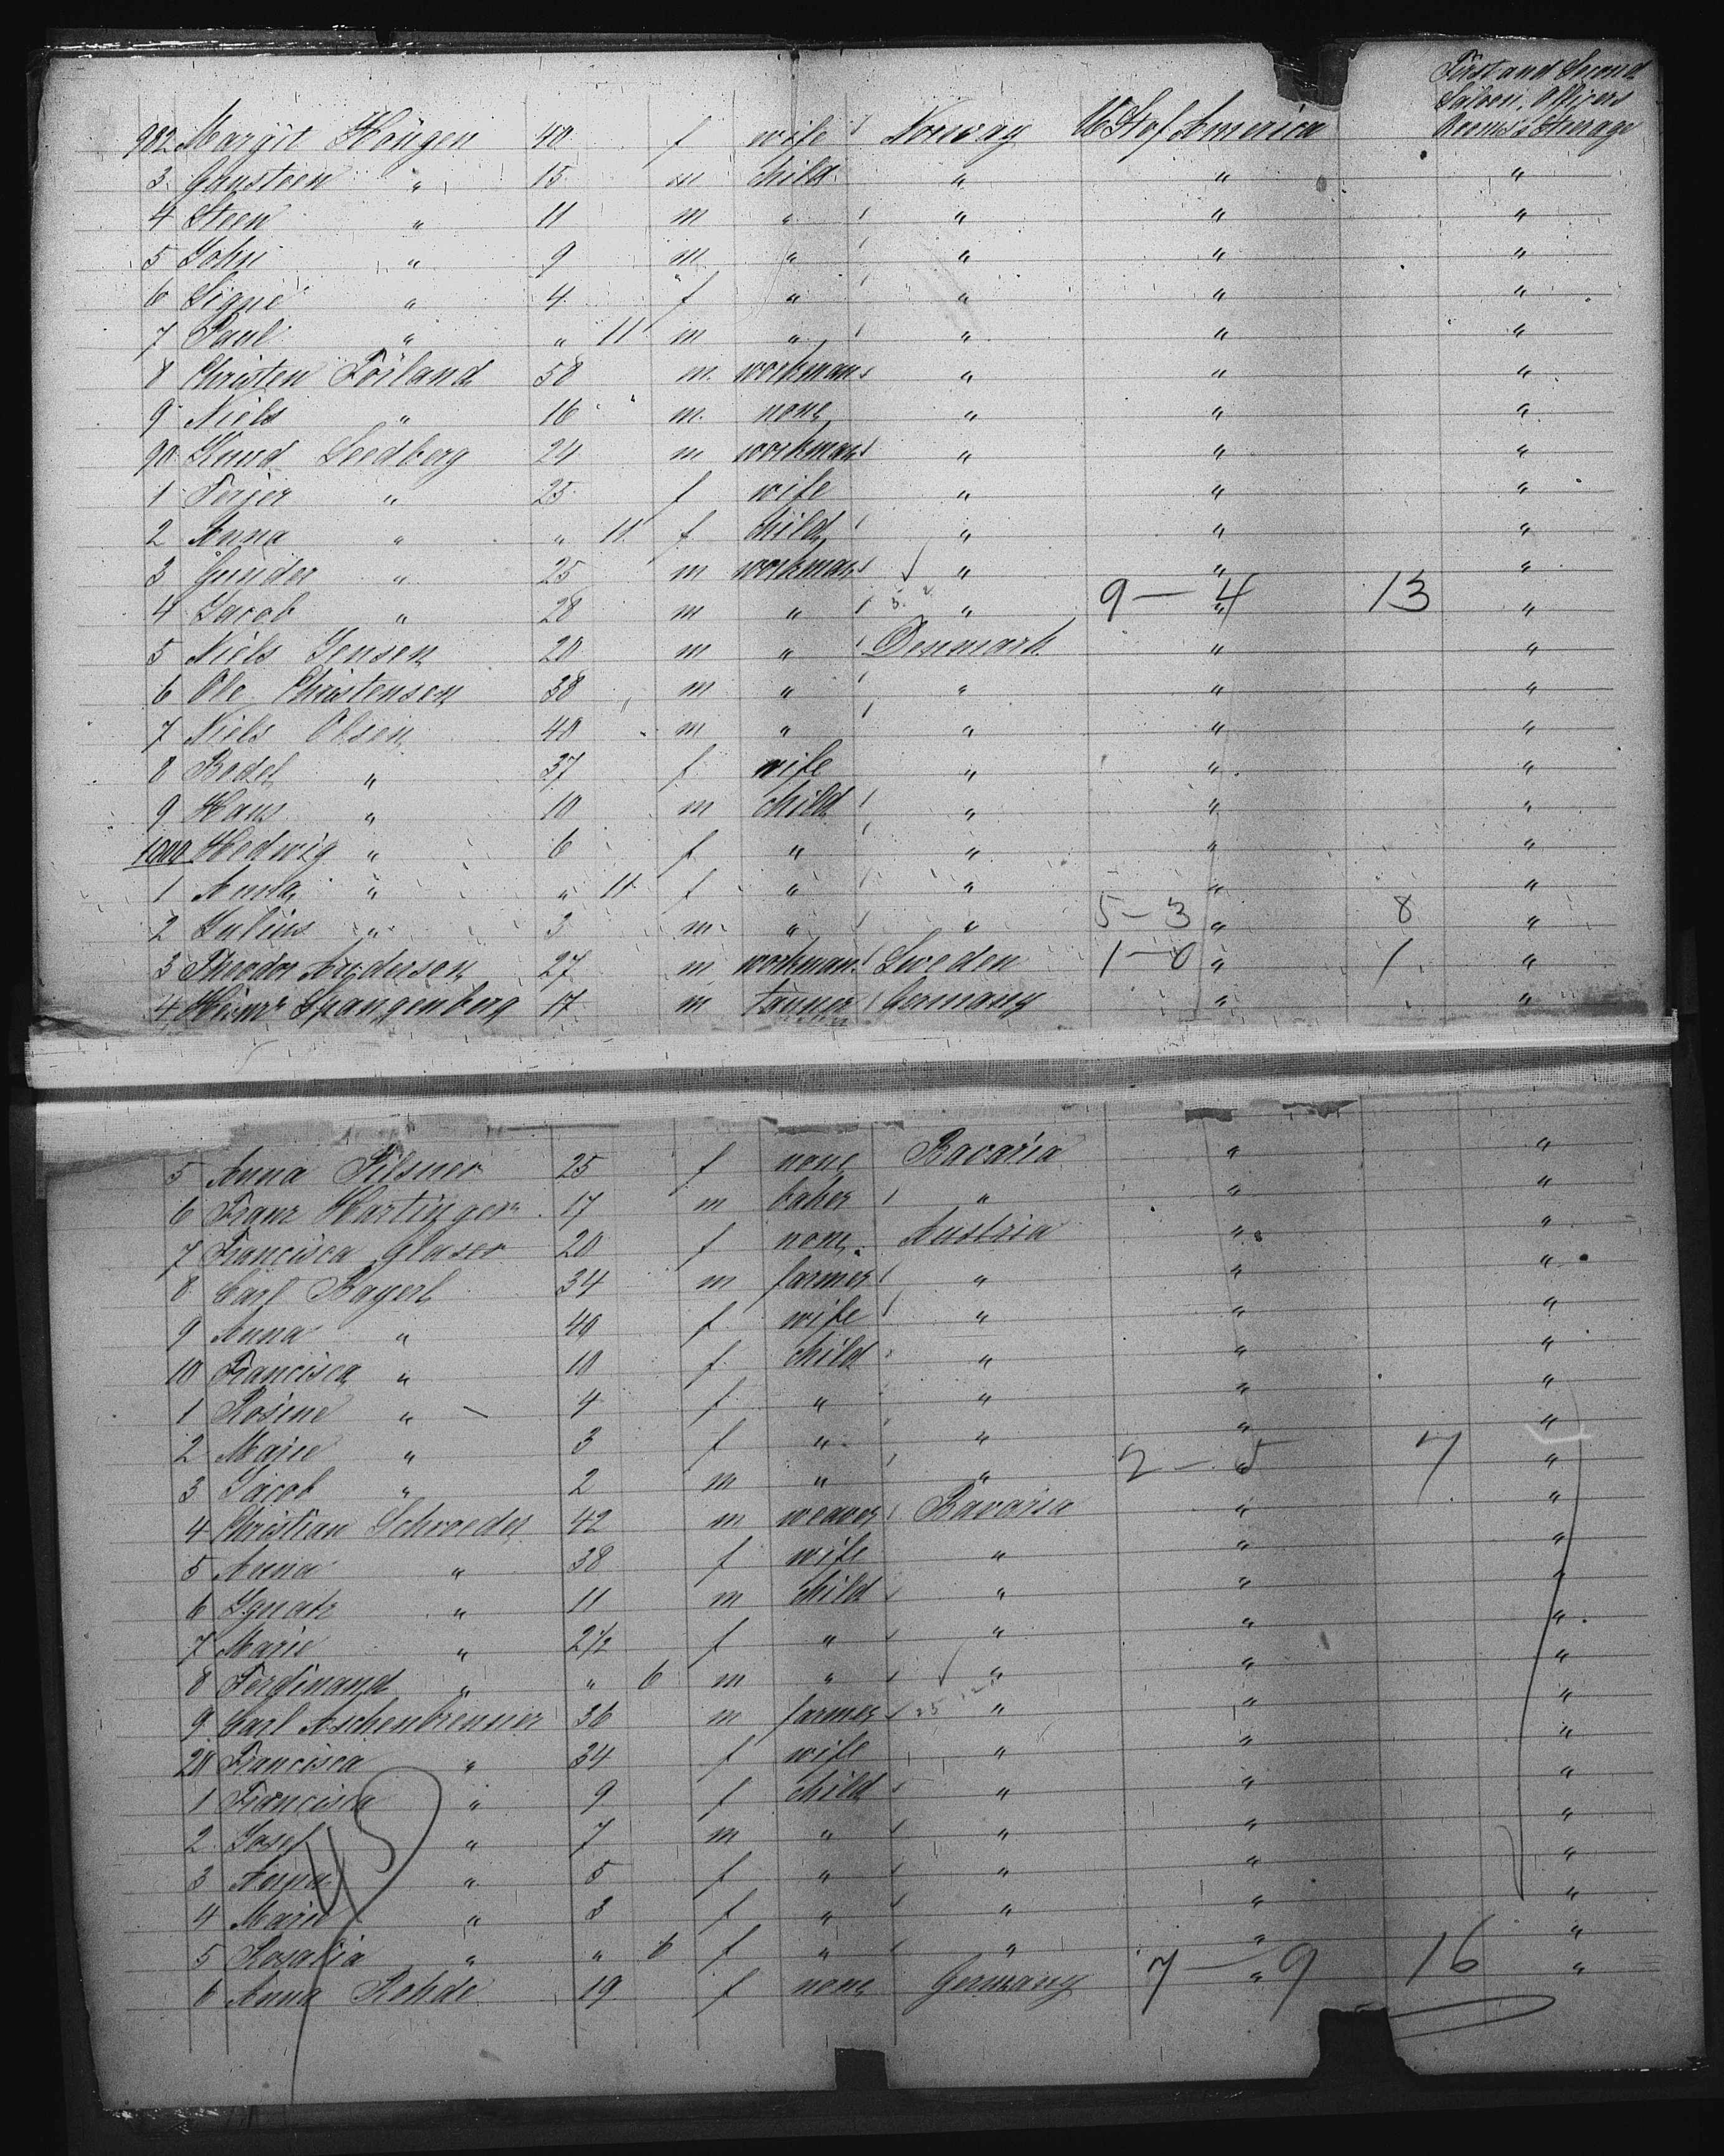 First and Second
Saloon, Officers
Rooms & Steerage
982 Margit Haugen 40 f wife Norway U St of America
3 Gunsteen " 15 m child " " "
4 Steen " 11 m " " " "
5 John " 9 m " " " "
6 Signe " 4 f " " " "
7 Paul " " 11 m " " " "
8 Christen Förland 58 m. workman " " "
9 Niels " 16 m. none " " "
90 Knud Leedberg 24 m workman " " "
1 Terjer " 25 f wife " " "
2 Anna " " 11 f child " " "
3 Gunder " 25 m workman " " "
4 Jacob " 28 m " " 9 - 4 " 13 "
5 Niels Jensen 20 m " Denmark " "
6 Ole Christensen 38 m " " " "
7 Niels Olsen 40 m " " " "
8 Bodel " 37 f wife " " "
9 Hans " 10 m child " " "
1000 Hedwig " 6 f " " " "
1 Anna " " 11 f " " " "
2 Julius " 3 m " " 5 - 3 " 8 "
3 Theodor Andersen 27 m workman Sweden 1 - 0 " 1 "
4 Heinr Spangenberg 17 m tanner Germany " "
5 Anna Pilsner 25 f none Bavaria " "
6 Franz Hartinger 17 m baker " " "
7 Francisca Glaser 20 f none Austria " "
8 Carl Bayerl 34 m farmer " " "
9 Anna " 40 f wife " " "
10 Francisca " 10 f child " " "
1 Rosine " 4 f " " " "
2 Marie " 3 f " " " "
3 Jacob " 2 m " " 2 - 5 " 7 "
4 Christian Schroeder 42 m weaver Bavaria " "
5 Anna " 38 f wife " " "
6 Ignatz " 11 m child " " "
7 Marie " 2 1/2 f " " " "
8 Ferdinand " " 6 m " " " "
9 Carl Aschenbrenner 36 m farmer " " "
20 Francisca " 34 f wife " " "
1 Francisca " 9 f child " " "
2 Josef " 7 m " " " "
3 Anna " 5 f " " " "
4 Marie " 3 f " " " "
5 Rosalia " " 6 f " " " "
6 Anna Rohde 19 f none Germany 7 - 9 " 16 "
45